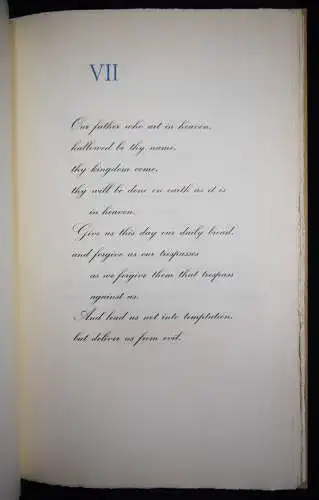 VII
Our father who art in heaven,
hallowed be thy name,
thy kingdom come,
thy will be done on earth as it is
in heaven.
Give us this day our daily bread,
and forgive us our trespasses
as we forgive them that trespass
against us.
And lead us not into temptation,
but deliver us from evil.